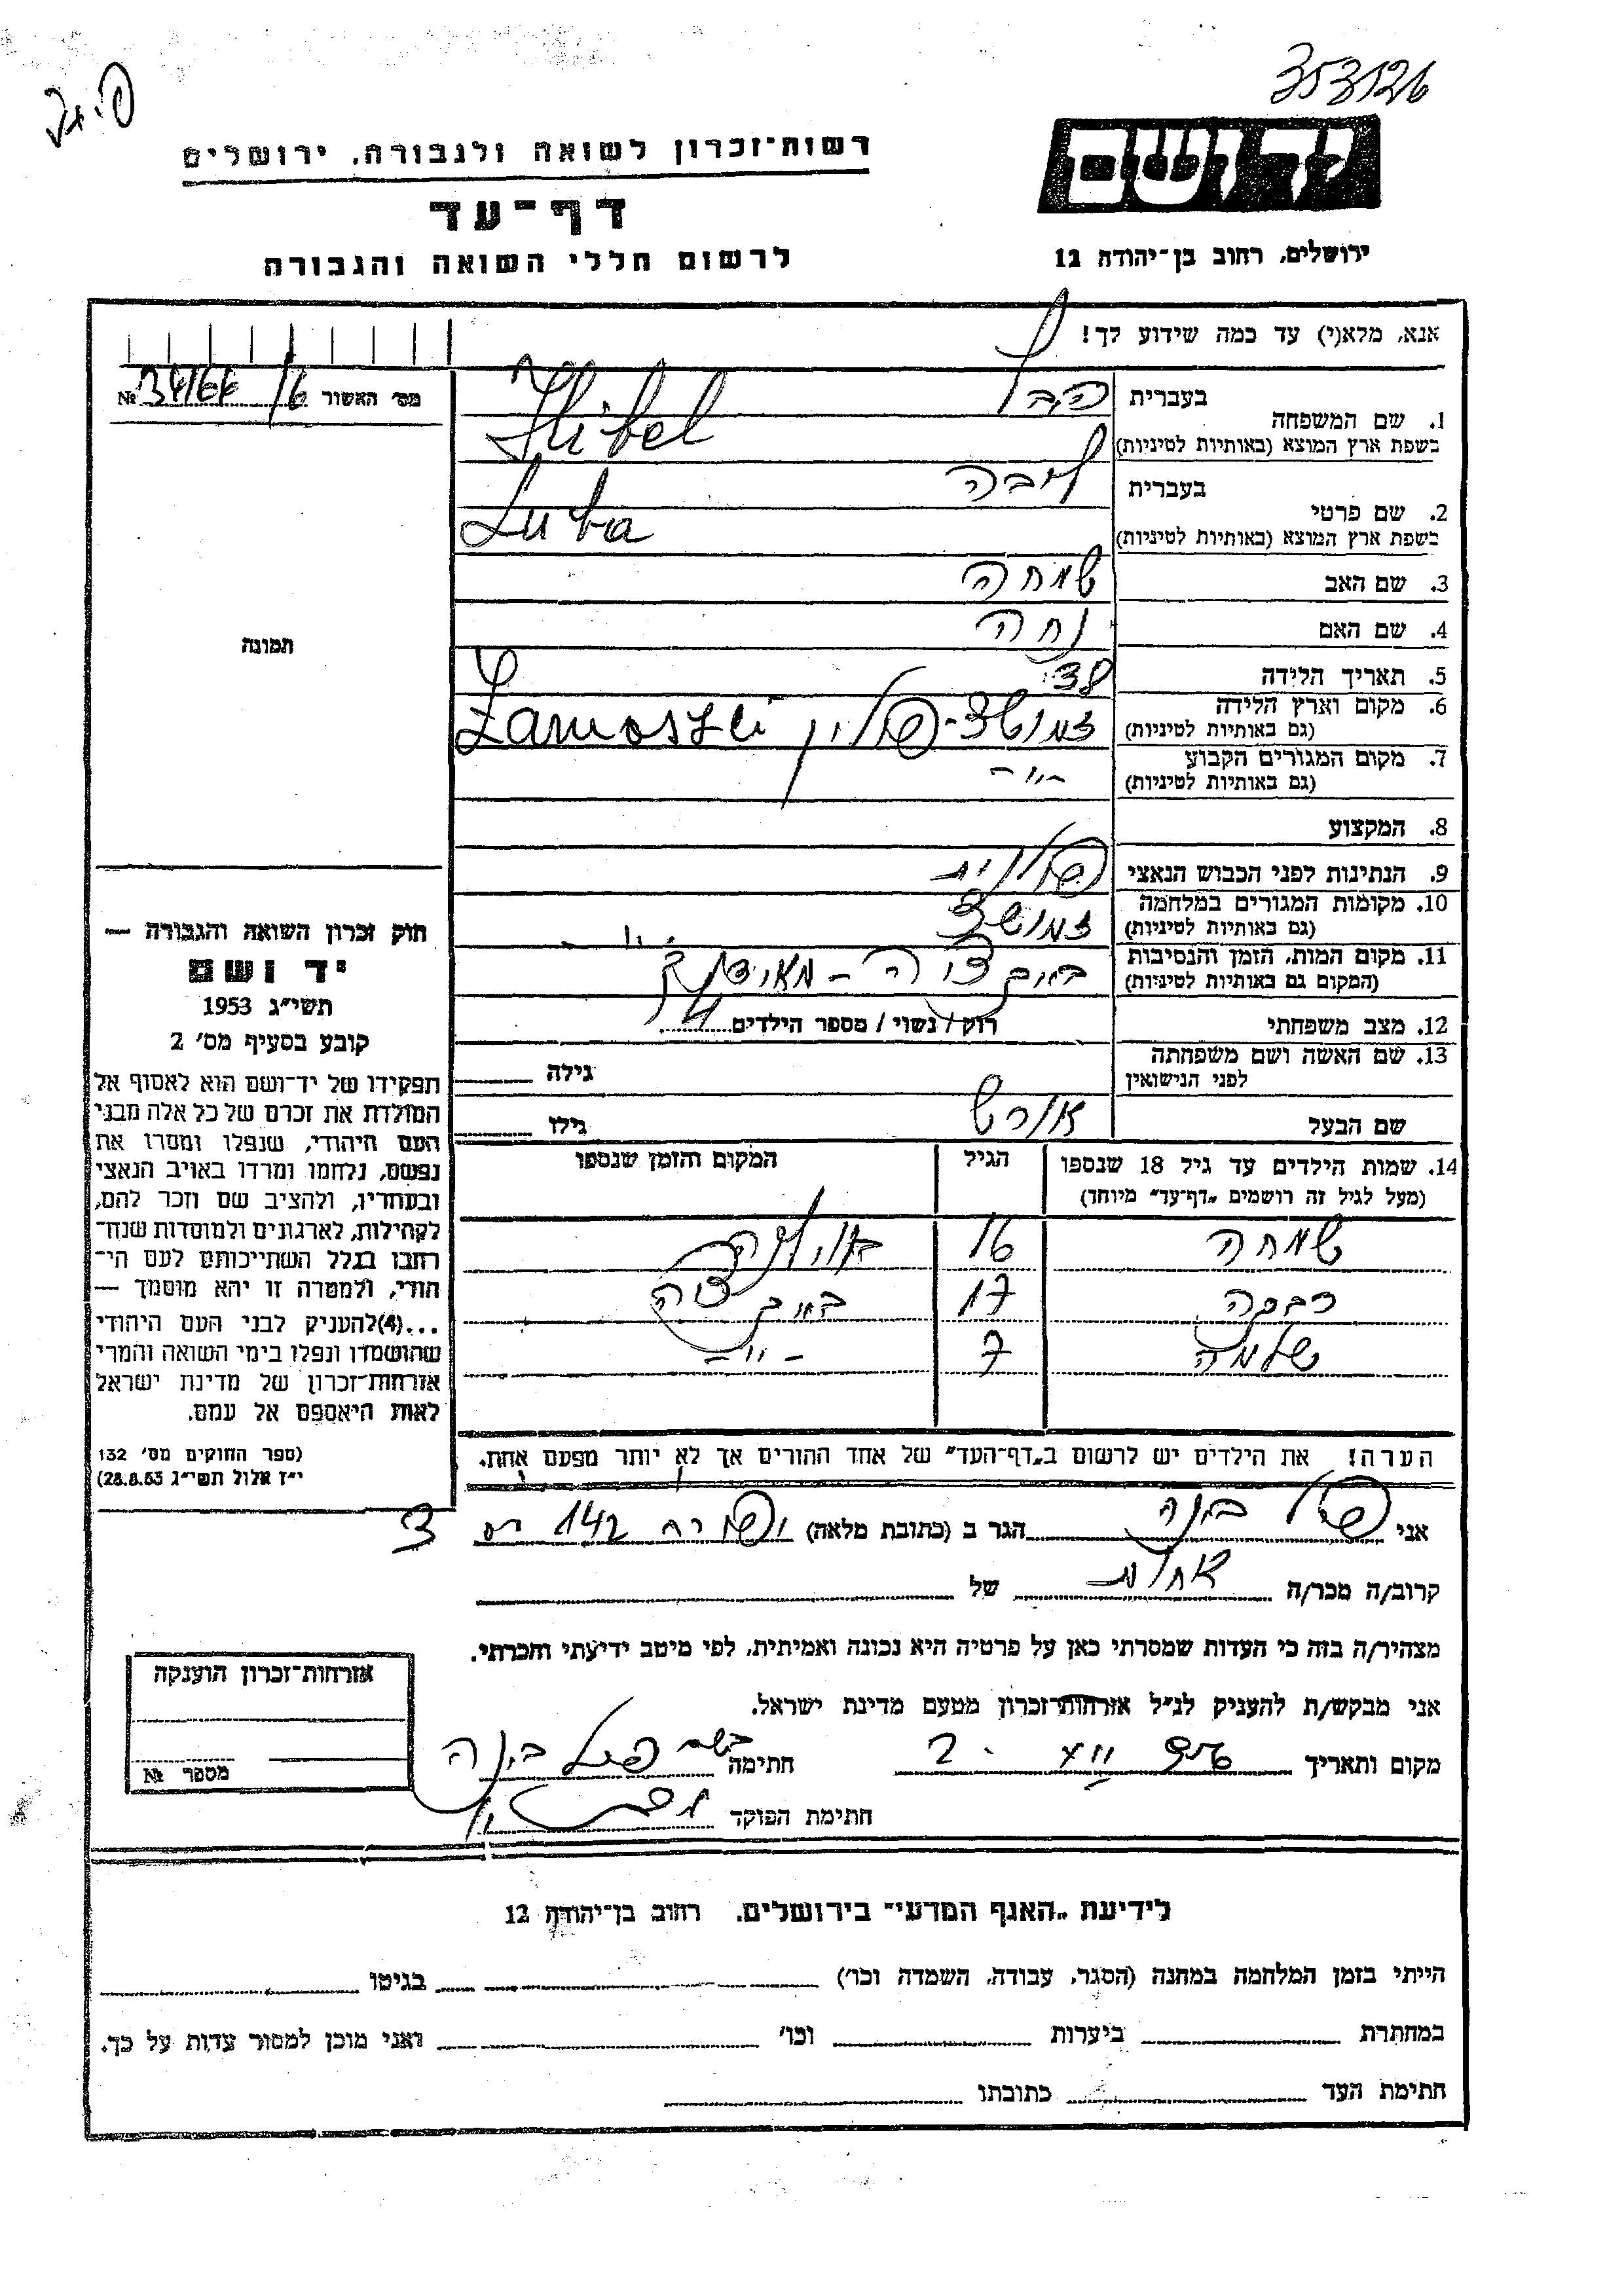 353126
רשות־זכרון לשואה ולגבורה, ירושלים
יד ושם
דף־עד
לרשום חללי השואה והגבורה
ירושלים, רחוב בן־יהודה 12
אנא, מלא(י) עד כמה שידוע לך!
מס׳ האשור №
1. שם המשפחה
בעברית
בשפת ארץ המוצא (באותיות לטיניות) Hibel
2. שם פרטי
בעברית ליבה
בשפת ארץ המוצא (באותיות לטיניות) Luba
3. שם האב שמחה
4. שם האם נחה
5. תאריך הלידה 38
6. מקום וארץ הלידה
(גם באותיות לטיניות) זמושץ-פולין
7. מקום המגורים הקבוע
(גם באותיות לטיניות) -״-
8. המקצוע
9. הנתינות לפני הכבוש הנאצי פולנית
10. מקומות המגורים במלחמה
(גם באותיות לטיניות) זמושץ
11. מקום המות, הזמן והנסיבות
(המקום גם באותיות לטיניות)
12. מצב משפחתי רוק / נשוי / מספר הילדים
13. שם האשה ושם משפחתה
לפני הנישואין גילה
שם הבעל גילו
14. שמות הילדים עד גיל 18 שנספו
(מעל לגיל זה רושמים „דף־עד״ מיוחד)
הגיל
המקום והזמן שנספו
שמחה 16
רבקה 17
שלמה 7 -״-
תמונה
חוק זכרון השואה והגבורה —
יד ושם
תשי״ג 1953
קובע בסעיף מס׳ 2
תפקידו של יד־ושם הוא לאסוף אל
המולדת את זכרם של כל אלה מבני
העם היהודי, שנפלו ומסרו את
נפשם, נלחמו ומרדו באויב הנאצי
ובעוזריו, ולהציב שם וזכר להם,
לקהילות, לארגונים ולמוסדות שנח־
רבו בגלל השתייכותם לעם הי־
הודי, ולמטרה זו יהא מוסמך —
...(4)להעניק לבני העם היהודי
שהושמדו ונפלו בימי השואה והמרי
אזרחות־זכרון של מדינת ישראל
לאות היאספם אל עמם.
(ספר החוקים מס׳ 132
י״ז אלול תשי״ג 28.8.53)
הערה! את הילדים יש לרשום ב„דף־העד״ של אחד ההורים אך לא יותר מפעם אחת.
אני הגר ב (כתובת מלאה) 142
קרוב/ה מכר/ה אחות של
מצהיר/ה בזה כי העדות שמסרתי כאן על פרטיה היא נכונה ואמיתית, לפי מיטב ידיעתי והכרתי.
אני מבקש/ת להעניק לנ״ל אזרחות־זכרון מטעם מדינת ישראל.
מקום ותאריך חתימה
חתימת הפוקד
אזרחות־זכרון הוענקה
מספר №
לידיעת „האגף המדעי״ בירושלים, רחוב בן־יהודה 12
הייתי בזמן המלחמה במחנה (הסגר, עבודה, השמדה וכו׳) בגיטו
במחתרת ביערות וכו׳ ואני מוכן למסור עדות על כך.
חתימת העד כתובתו